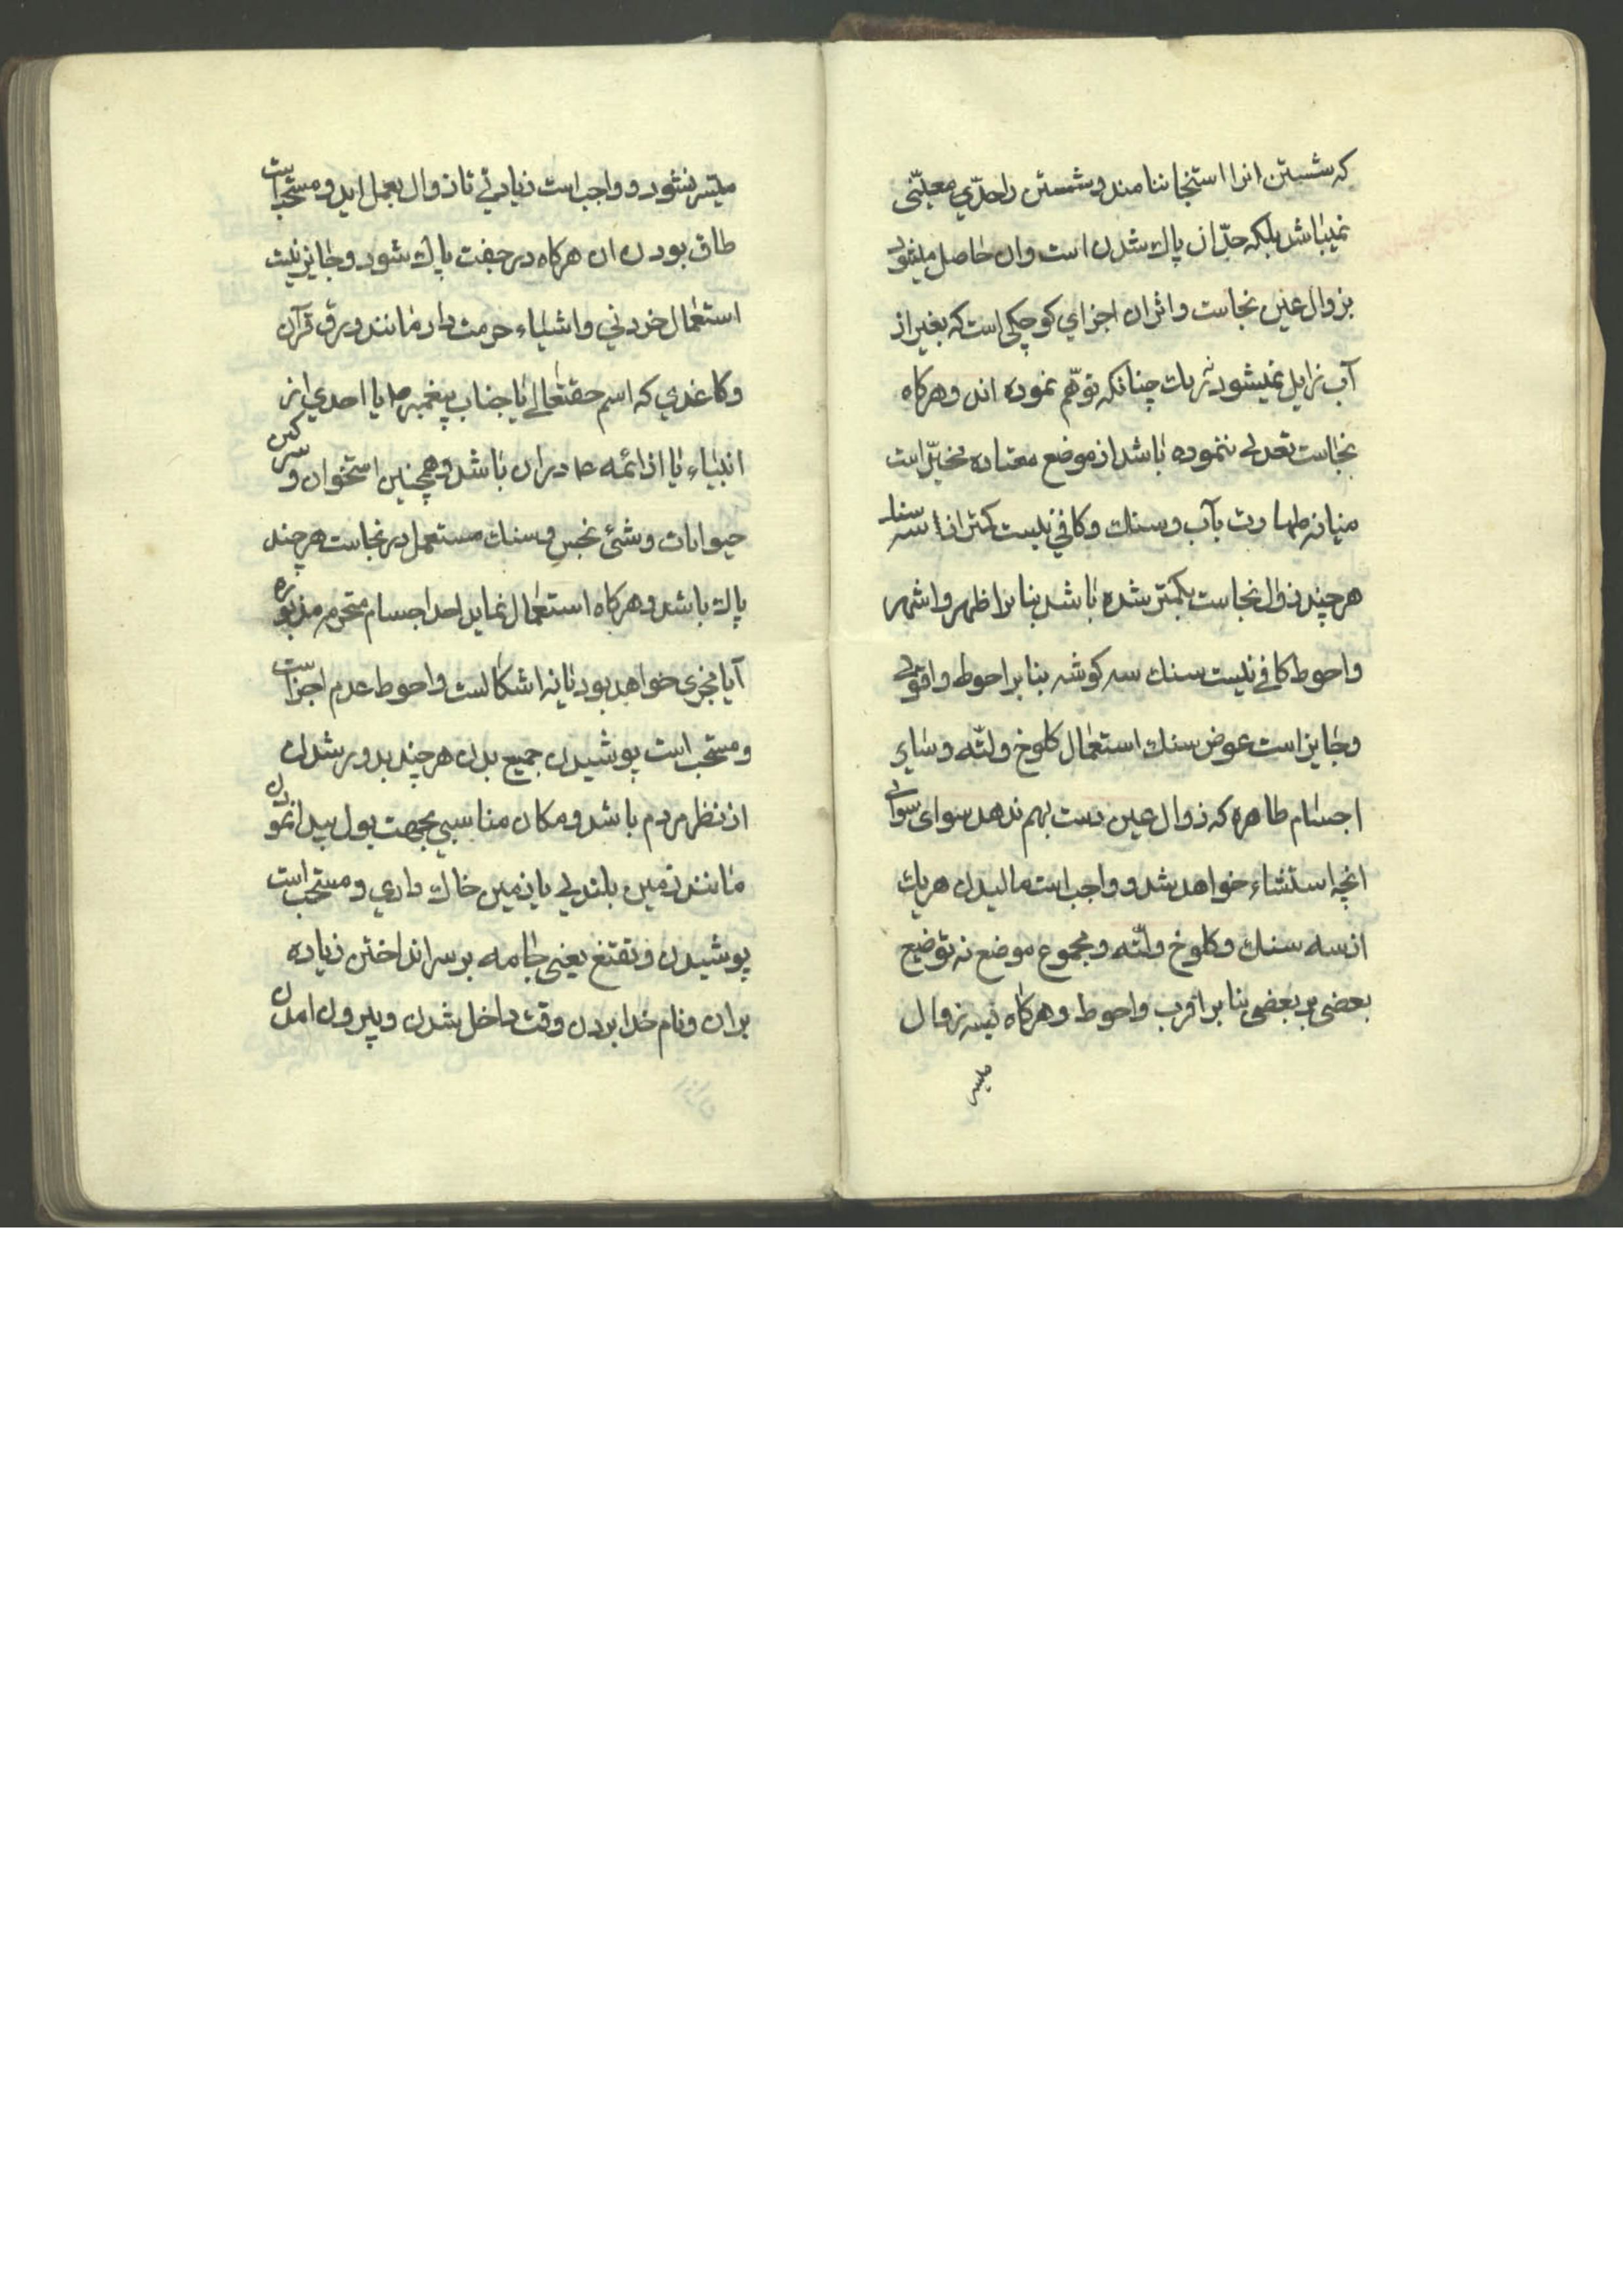 که شستن انرا استنجا ننامند و شستن را حدّي معیّنی
نمیباشد بلکه حدّ ان پاك شدن است وان حاصل میشود
بزوال عین نجاست واثر ان اجزاي کوچکی است که بغیر از
آب زایل نمیشود چنانکه توهّم نموده اند وهرکاه
نجاست تعدي ننموده باشد از موضع معتاده مخیّر است
میانه طهارت بآب وسنك وکافي نیست کمتر از سه سنك
هرچند زوال نجاست بکمتر شده باشد بنابر اظهر واشهر
واحوط کافي نیست سنك سه کوشه بنابر احوط واقوي
وجایز است عوض سنك استعمال کلوخ ولتّه وسایر
اجسام طاهره که زوال عین دست بهم ندهد سوای سواي
انچه استثناء خواهد شد و واجب است مالیدن هریك
از سه سنك وکلوخ ولتّه و مجموع موضع نه توضیع
بعضی بر بعضی بنابر اقرب واحوط وهرکاه زوال
میسر
میسر نشود و واجب است زیادتي تا زوال بعمل اید و مستحب است
طاق بودن ان هرکاه در جفت پاك شود وجایز نیست
استعمال خردني واشیاء حرمت دار مانند ورق قرآن
وکاغذي که اسم حقتعالی یا جناب پیغمبر ص یا احدي از
انبیاء یا از ائمه ع در ان باشد وهمچنین استخوان و سرکین
حیوانات وشئ نجس وسنك مستعمل در نجاست هرچند
پاك باشد وهرکاه استعمال نماید احد اجسام متحرمه مذبوره
آیا مجزی خواهد بود یا نه اشکالست واحوط عدم اجزاست
و مستحب است پوشیدن جمیع بدن هرچند بدور شدن
از نظر مردم باشد و مکان مناسبي بجهت بول پیدا نمودن
مانند زمین بلندي یا زمین خاك داري و مستحب است
پوشیدن و تقنع یعنی جامه بر سر انداختن زیاده
بران ونام خدا بردن وقت داخل شدن وبیرون امدن